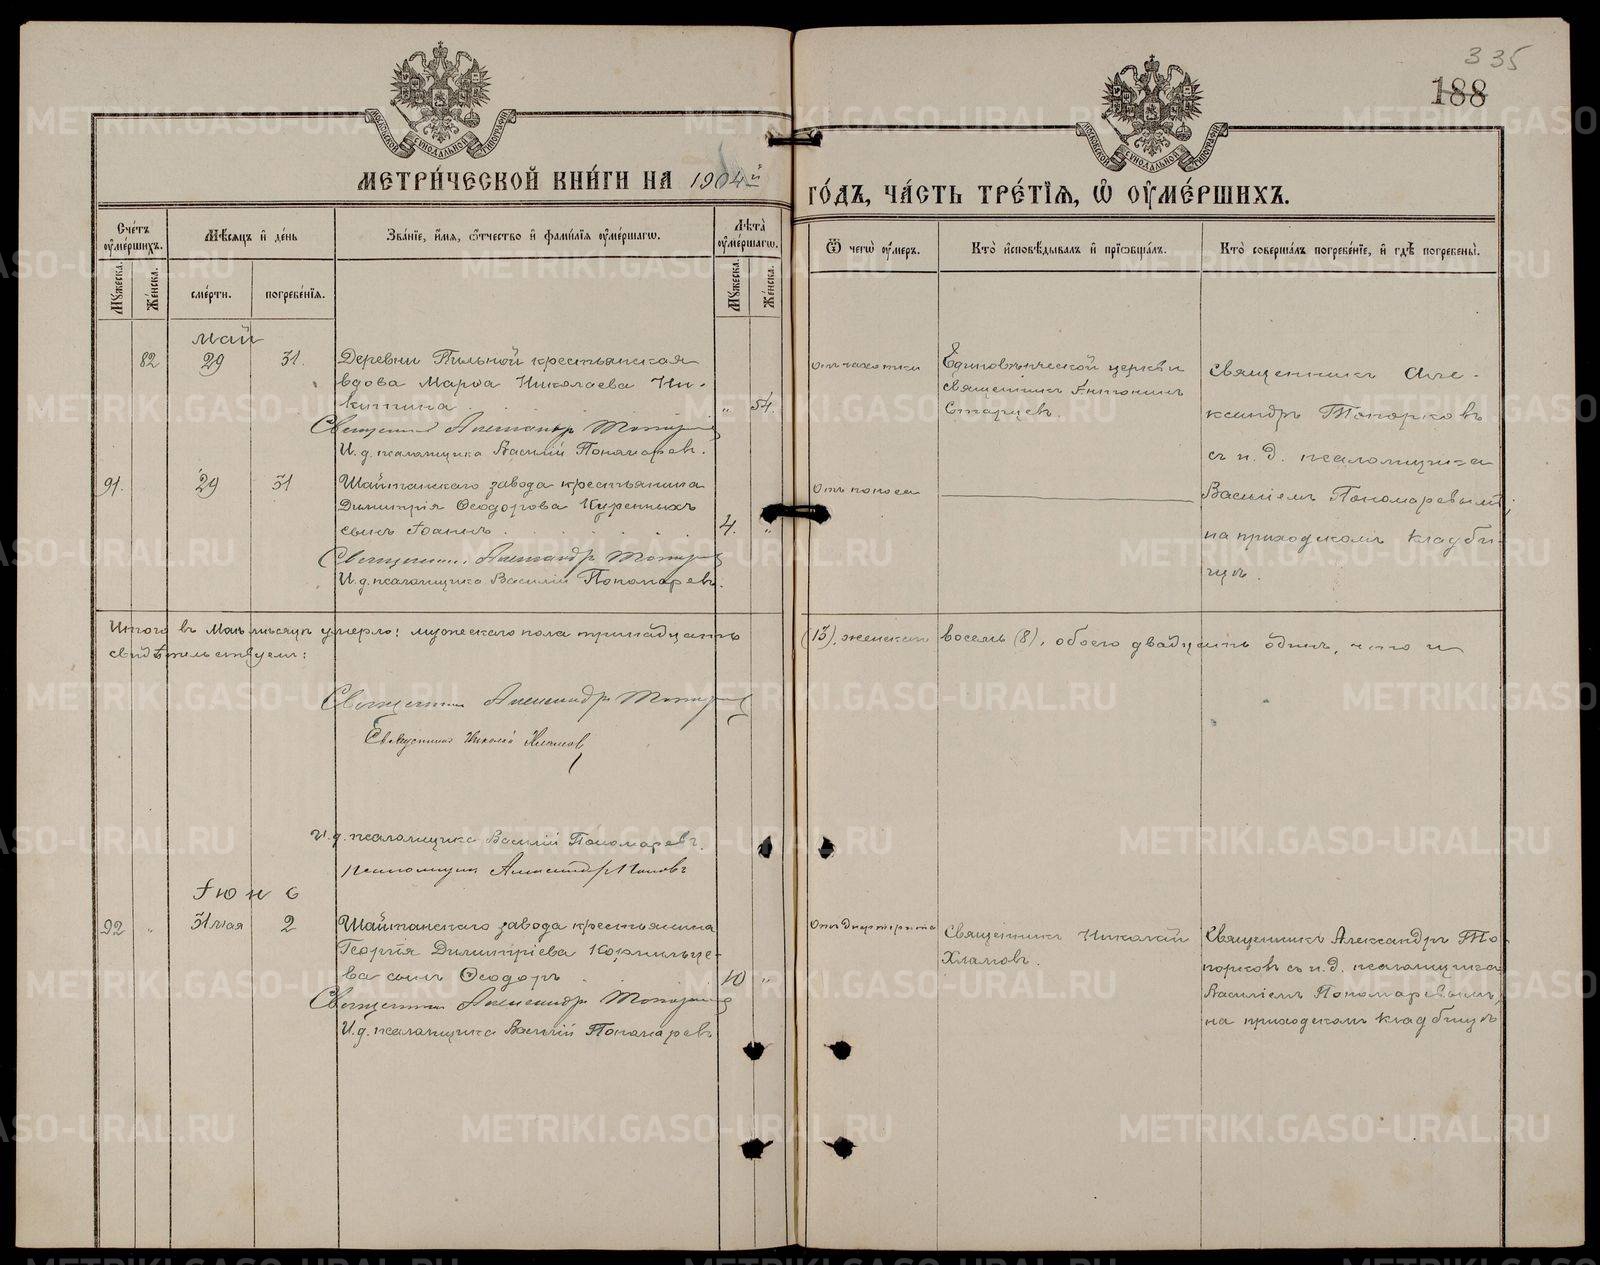 335
188
МЕТРИ́ЧЕСКОЙ КНИ́ГИ НА 1904й ГО́ДЪ, ЧА́СТЬ ТРЕ́ТЇѦ, Ѽ ОУ҆МЕ́РШИХЪ.
Сче́тъ оу҆ме́ршихъ.
Мѣ́сѧцъ и҆ де́нь
Зва́нїе, и҆́мѧ, ѻ҆́тчество и҆ фами́лїѧ оу҆ме́ршагѡ.
Лѣ̑та̀ оу҆ме́ршагѡ.
Ѿ чегѡ̀ оу҆́меръ.
Кто̀ и҆сповѣ́дывалъ и҆ прїѡбща́лъ.
Кто̀ соверша́лъ погребе́нїе, и҆ гдѣ̀ погребены̀.
Мꙋ́жеска.
Же́нска.
сме́рти.
погребе́нїѧ.
Мꙋ́жеска.
Же́нска.
Май
82 29 31. Деревни Пильной крестьянская
вдова Марѳа Николаева Ни-
китина " 54.
Священникъ Александръ Топорковъ
И. д. псаломщика Василій Пономаревъ.
Отъ чахотки
Единовѣрческой церкви
священникъ
Старцевъ.
Священникъ Але-
ксандръ Топорковъ
съ и. д. псаломщика
Василіемъ Пономаревымъ;
на приходскомъ кладби-
щѣ.
91. 29 31 Шайтанскаго завода крестьянина
Димитрія Ѳеодорова Куренныхъ
сынъ Іоаннъ 4. "
Священникъ Александръ Топорковъ
И. д. псаломщика Василій Пономаревъ.
Отъ поноса
Итого въ Маѣ мѣсяцѣ умерло: мужескаго пола тринадцать (13), женскаго восемь (8), обоего двадцать одинъ, что и
свидѣтельствуемъ:
Священникъ Александръ Топорковъ
Священникъ Николай Хламовъ
И. д. псаломщика Василій Пономаревъ.
Псаломщикъ Александръ Поповъ
Іюнь
92 " 31 мая 2 Шайтанскаго завода крестьянина
Георгія Димитріева Кормильце-
ва сынъ Ѳеодоръ 10 "
Священникъ Александръ Топорковъ
И. д. псаломщика Василій Пономаревъ
Отъ дифтерита
Священникъ Николай
Хламовъ.
Священникъ Александръ То-
порковъ съ и. д. псаломщика
Василіемъ Пономаревымъ,
на приходскомъ кладбищѣ
METRIKI.GASO-URAL.RU